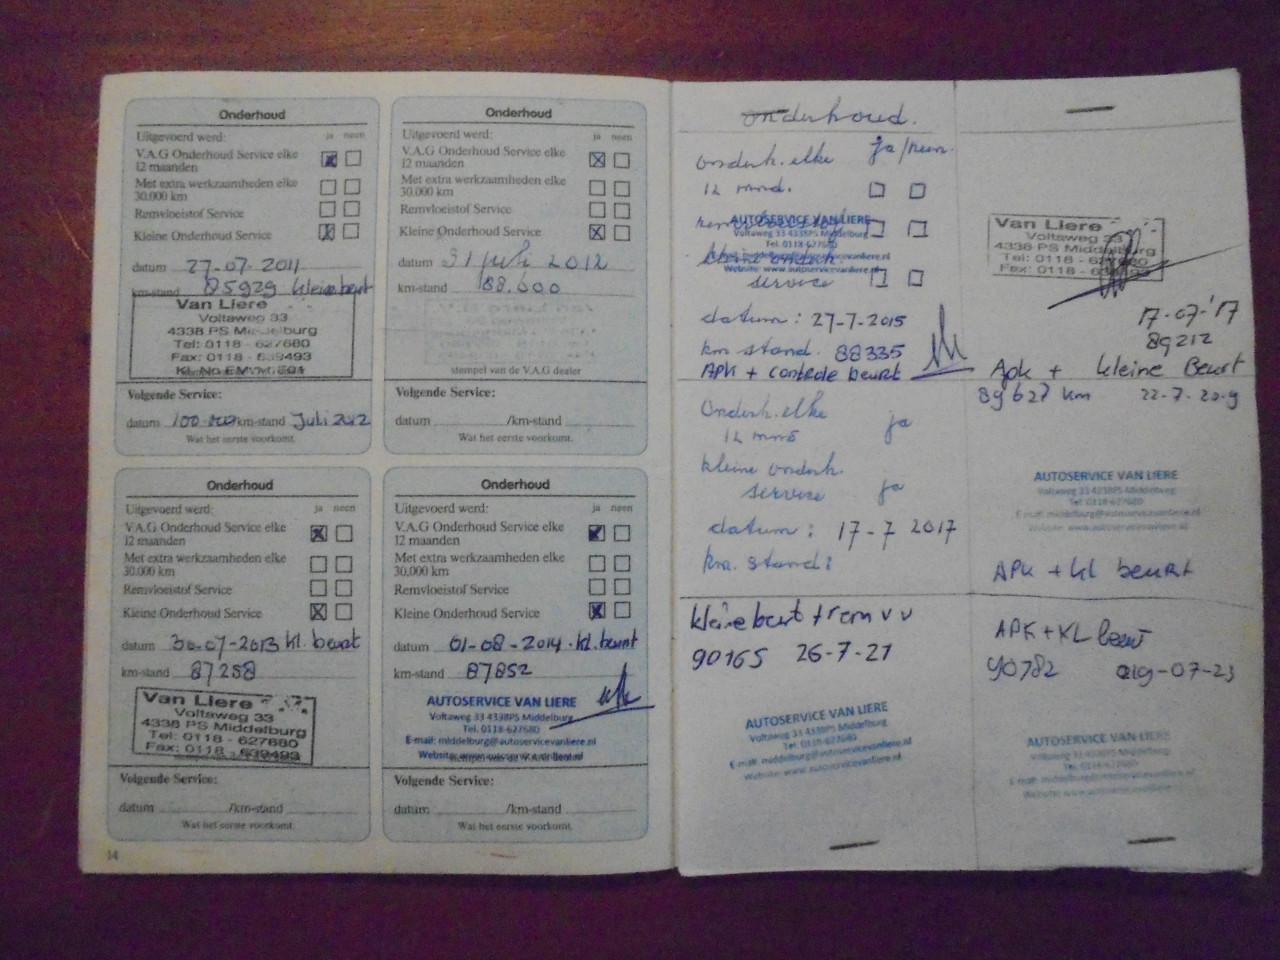 Onderhoud
Uitgevoerd werd: ja neen
V.A.G Onderhoud Service elke
12 maanden
Met extra werkzaamheden elke
30.000 km
Remvloeistof Service
Kleine Onderhoud Service
datum 27-07-2011
km-stand 85929 kleine beurt
Van Liere
Voltaweg 33
4338 PS Middelburg
Tel: 0118 - 627680
Fax: 0118 - 639493
Volgende Service:
datum 100.000 /km-stand Juli 2012
Wat het eerste voorkomt.
Onderhoud
Uitgevoerd werd: ja neen
V.A.G Onderhoud Service elke
12 maanden
Met extra werkzaamheden elke
30.000 km
Remvloeistof Service
Kleine Onderhoud Service
datum 31 juli 2012
km-stand 88.000
stempel van de V.A.G dealer
Volgende Service:
datum /km-stand
Wat het eerste voorkomt.
Onderhoud
Uitgevoerd werd: ja neen
V.A.G Onderhoud Service elke
12 maanden
Met extra werkzaamheden elke
30.000 km
Remvloeistof Service
Kleine Onderhoud Service
datum 30-07-2013 kl. beurt
km-stand 87258
Van Liere
Voltaweg 33
4338 PS Middelburg
Tel: 0118 - 627680
Fax: 0118 - 639493
Volgende Service:
datum /km-stand
Wat het eerste voorkomt.
Onderhoud
Uitgevoerd werd: ja neen
V.A.G Onderhoud Service elke
12 maanden
Met extra werkzaamheden elke
30.000 km
Remvloeistof Service
Kleine Onderhoud Service
datum 01-08-2014. kl. beurt
km-stand 87852
AUTOSERVICE VAN LIERE
Voltaweg 33 4338PS Middelburg
Tel. 0118-627680
E-mail: middelburg@autoservicevanliere.nl
Website: www.autoservicevanliere.nl
Volgende Service:
datum /km-stand
Wat het eerste voorkomt.
14
onderhoud.
onderh. elke ja/neen.
12 mnd.
AUTOSERVICE VAN LIERE
Voltaweg 33 4338PS Middelburg
Tel. 0118-627680
Website: www.autoservicevanliere.nl
kleine onderh.
service
datum: 27-7-2015
km stand. 88335
APK + controle beurt
Onderh. elke
12 mnd ja
kleine onderh.
service ja
datum: 17-7 2017
km. stand:
kleine beurt + rem vv
90165 26-7-21
AUTOSERVICE VAN LIERE
Voltaweg 33 4338PS Middelburg
Tel. 0118-627680
E-mail: middelburg@autoservicevanliere.nl
Website: www.autoservicevanliere.nl
Van Liere
Voltaweg 33
4338 PS Middelburg
Tel: 0118 - 627680
Fax: 0118 - 639493
17-07-'17
89212
Apk + kleine Beurt
89627 km 22-7-2019
AUTOSERVICE VAN LIERE
Voltaweg 33 4338PS Middelburg
Tel. 0118-627680
E-mail: middelburg@autoservicevanliere.nl
Website: www.autoservicevanliere.nl
APK + kl beurt
APK + KL beurt
90782 019-07-23
AUTOSERVICE VAN LIERE
Voltaweg 33 4338PS Middelburg
Tel. 0118-627680
E-mail: middelburg@autoservicevanliere.nl
Website: www.autoservicevanliere.nl